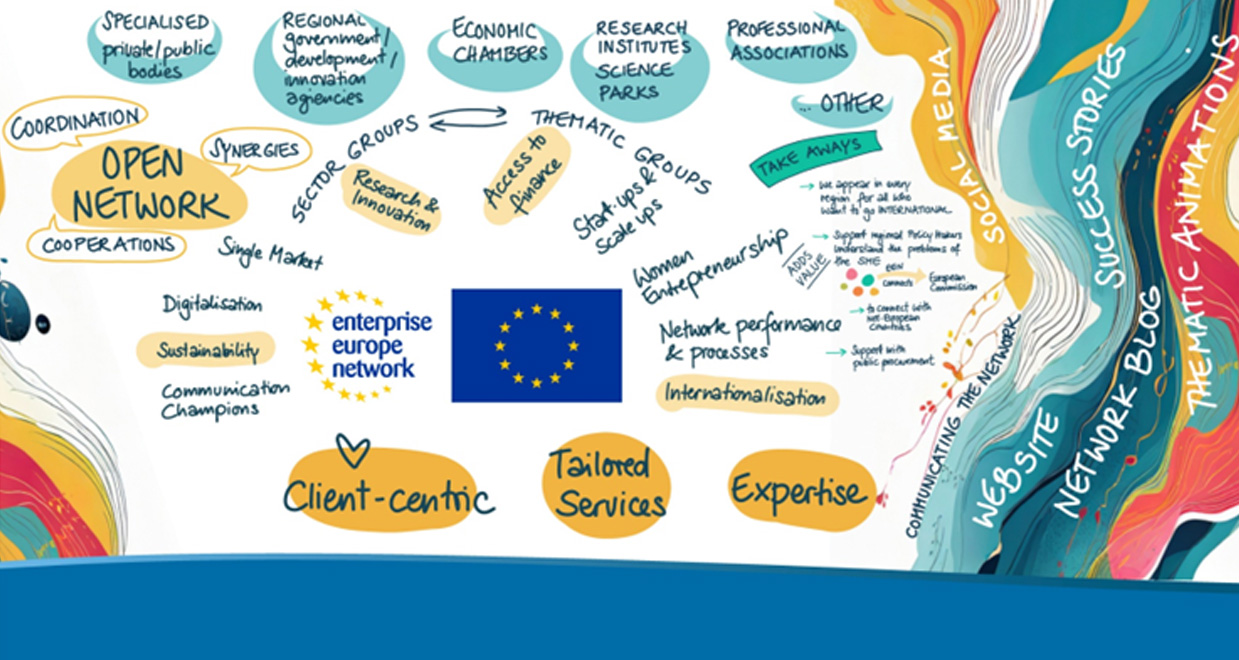 SPECIALISED
private/public
bodies
REGIONAL
government/
development/
innovation
agiencies
ECONOMIC
CHAMBERS
RESEARCH
INSTITUTES
SCIENCE
PARKS
PROFESSIONAL
ASSOCIATIONS
... OTHER
COORDINATION
OPEN
NETWORK
SYNERGIES
COOPERATIONS
SECTOR GROUPS
THEMATIC GROUPS
Research &
Innovation
Access to
finance
Start-ups &
Scale ups
Single Market
Women
Entrepreneurship
Digitalisation
Sustainability
Communication
Champions
enterprise
europe
network
Network performance
& processes
Internationalisation
TAKE AWAYS
we appear in every
region for all who
want to go INTERNATIONAL
Support regional Policy Makers
understand the problems of
the SME
ADDS
VALUE
EEN
connects
European
Commission
to connect with
Non-European
Countries
Support with
public procurement
Client-centric
Tailored
Services
Expertise
COMMUNICATING THE NETWORK
SOCIAL MEDIA
WEBSITE
SUCCESS STORIES
NETWORK BLOG
THEMATIC ANIMATIONS